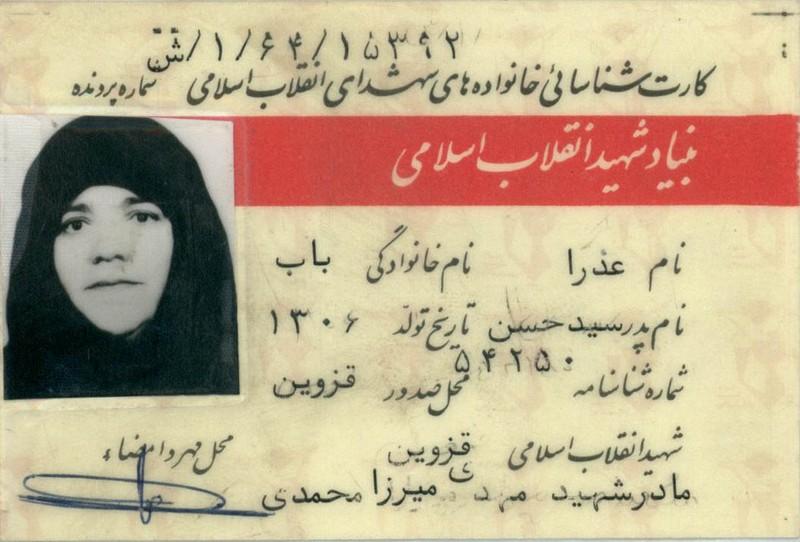 ش/۱/۶۴/۱۵۳۹۲
کارت شناسائی خانواده های شهدای انقلاب اسلامی شماره پرونده
بنیاد شهید انقلاب اسلامی
نام عذرا نام خانوادگی باب
نام پدر سید حسن تاریخ تولد ۱۳۰۶
شماره شناسنامه ۵۴۲۵۰ محل صدور قزوین
شهید انقلاب اسلامی قزوین محل مهر و امضاء
مادر شهید مهدی میرزا محمدی